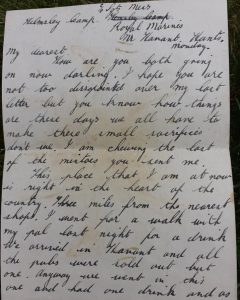 Helmsley Camp.
Royal Marines
Nr. Havant, Hants.
Monday.
My dearest
How are you both going
on now darling. I hope you are
not too disapointed over my last
letter but you know how things
are these days we all have to
make these small sacrifices
dont we. I am chewing the last
of the mintoes you sent me.
This place that I am at now
is right in the heart of the
country. Three miles from the nearest
shops. I went for a walk with
my pal last night for a drink
We arrived in Havant and all
the pubs were sold out but
one. anyway we went in this
one and had one drink and as